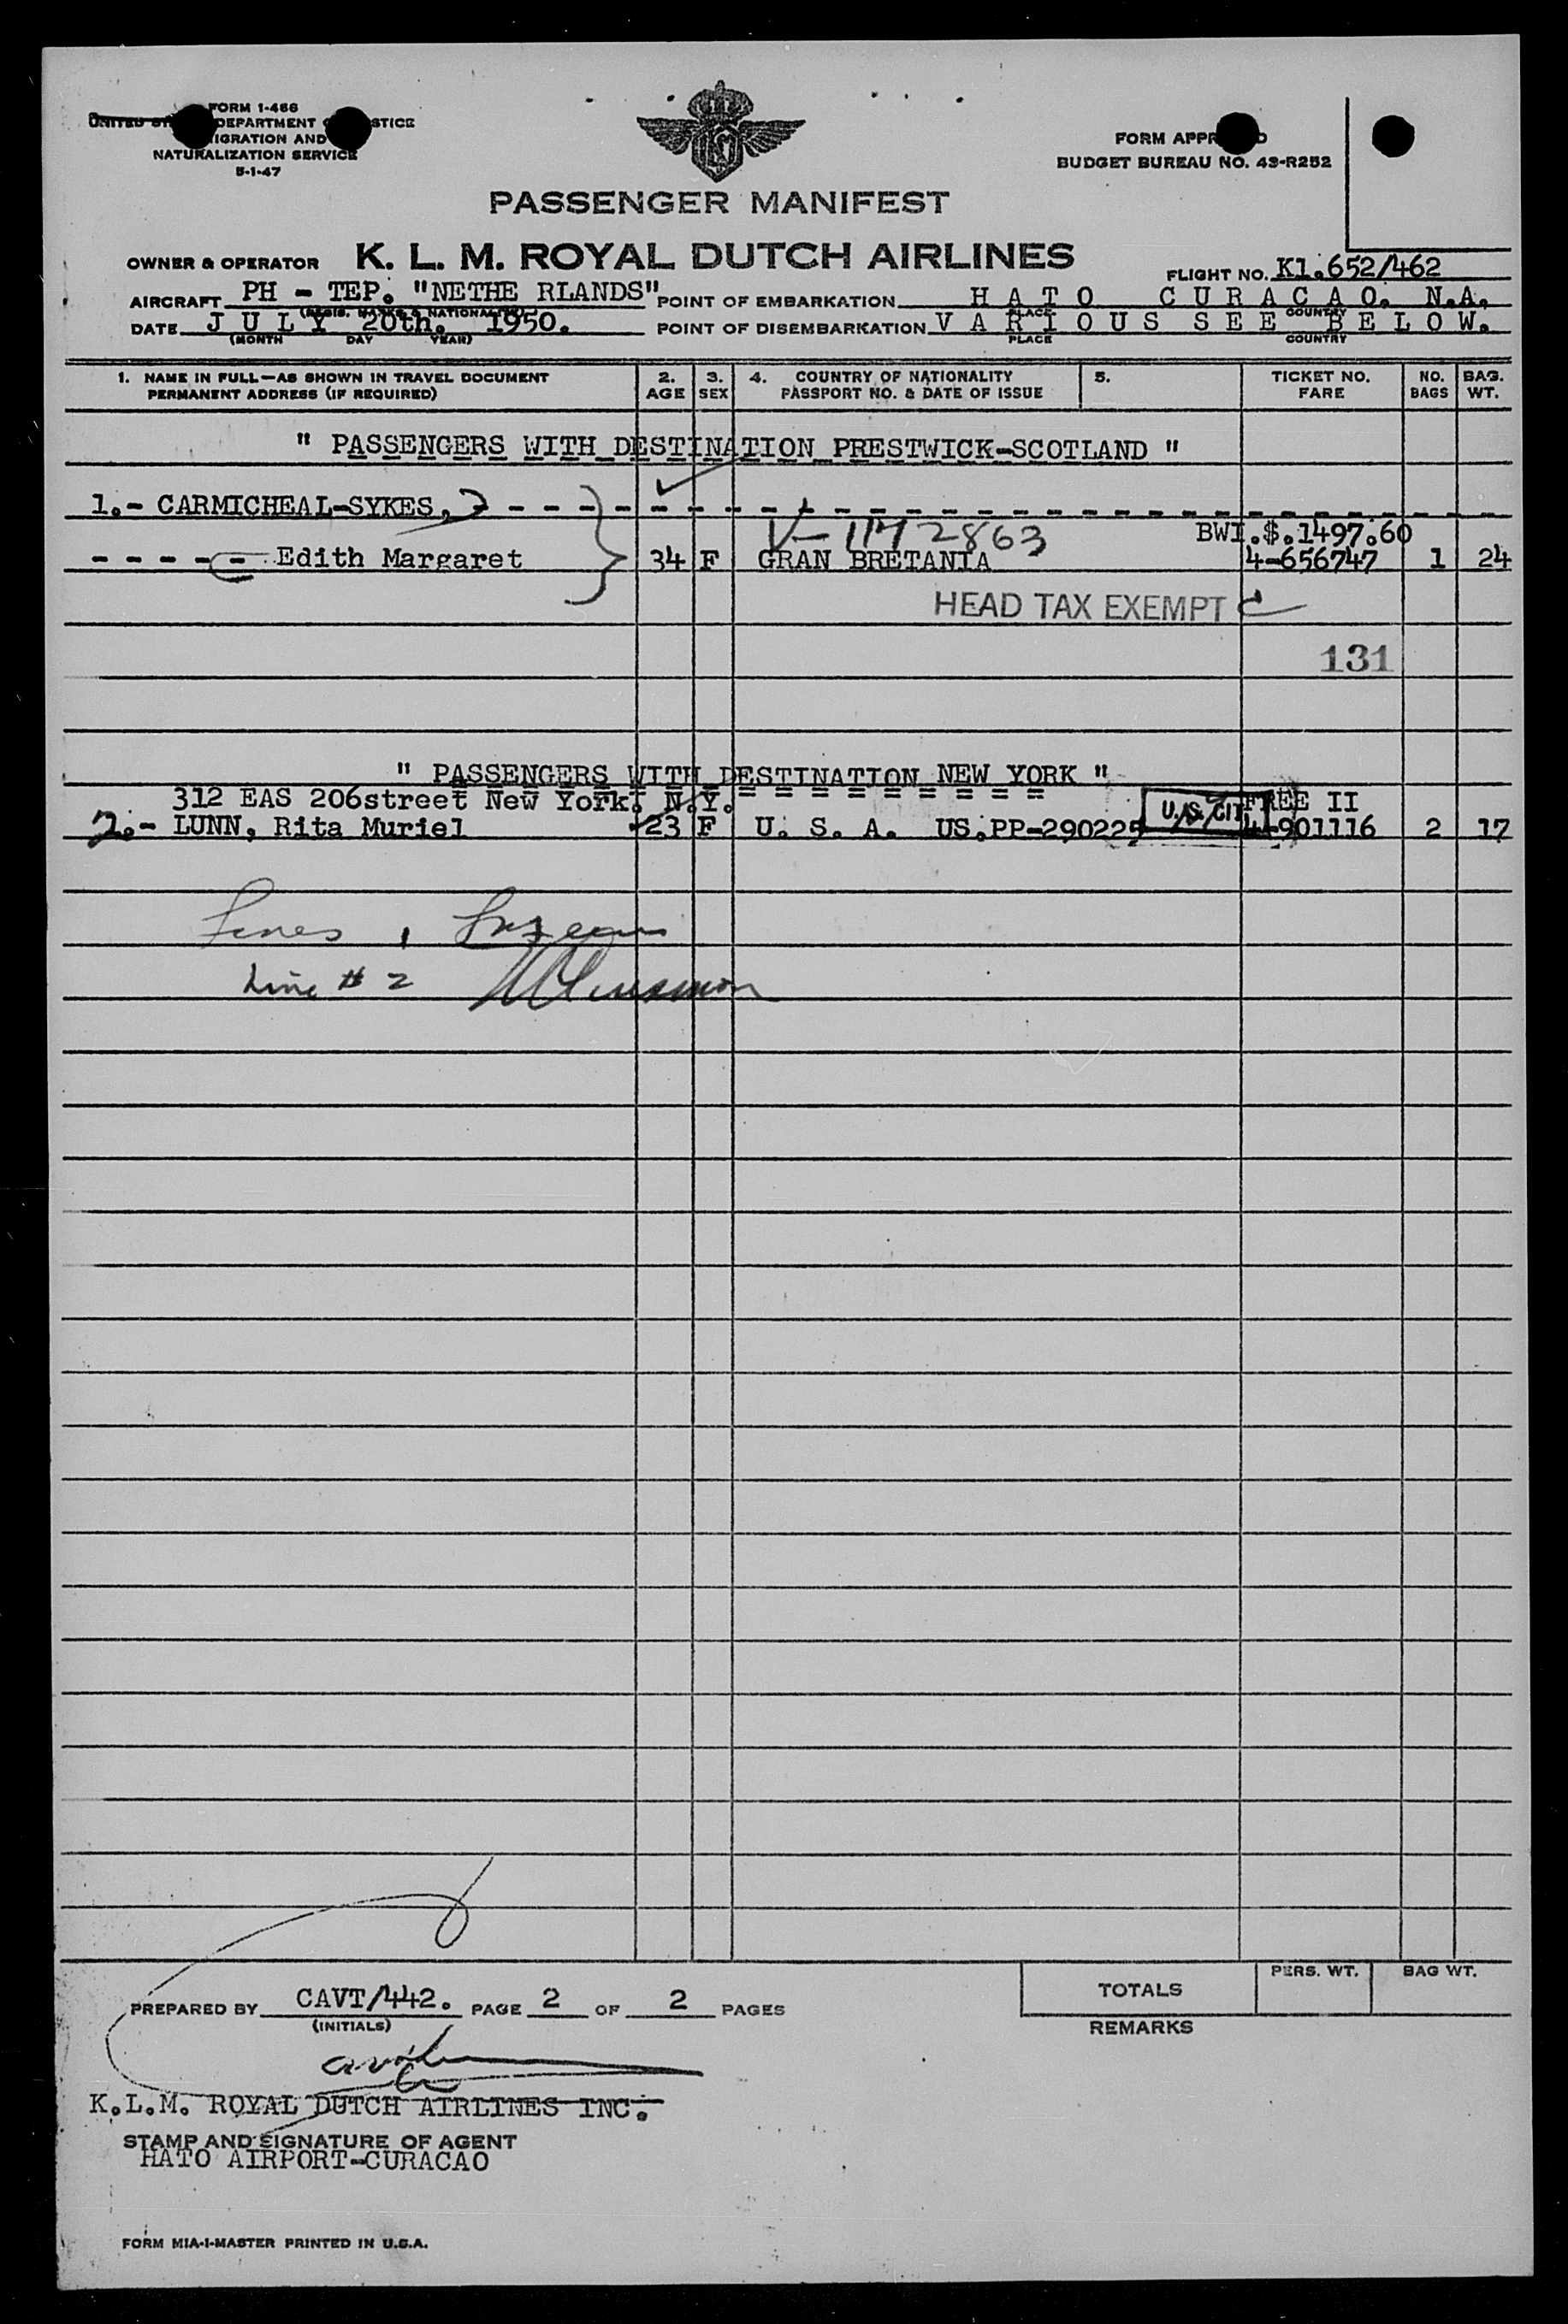 FORM 1-466
UNITED ST DEPARTMENT STICE
IGRATION AND
NATURALIZATION SERVICE
5-1-47
FORM APPR D
BUDGET BUREAU NO. 43-R252
PASSENGER MANIFEST
OWNER & OPERATOR K. L. M. ROYAL DUTCH AIRLINES
FLIGHT NO. Kl.652/462
AIRCRAFT PH - TEP. "NETHE RLANDS" POINT OF EMBARKATION H A T O C U R A C A O. N.A.
(REGIS. MARKS & NATIONALITY) PLACE COUNTRY
DATE J U L Y 20th. 1950. POINT OF DISEMBARKATION V A R I O U S S E E B E L O W.
(MONTH DAY YEAR) PLACE COUNTRY
1. NAME IN FULL—AS SHOWN IN TRAVEL DOCUMENT 2. 3. 4. COUNTRY OF NATIONALITY 5. TICKET NO. NO. BAG.
PERMANENT ADDRESS (IF REQUIRED) AGE SEX PASSPORT NO. & DATE OF ISSUE FARE BAGS WT.
" PASSENGERS WITH DESTINATION PRESTWICK-SCOTLAND "
1.- CARMICHEAL-SYKES, - - - - - - - - - - - - - - - - - - - - - - - - - - - - -
V-1172863 BWI.$.1497.60
- - - - - Edith Margaret 34 F GRAN BRETANIA 4-656747 1 24
HEAD TAX EXEMPT
131
" PASSENGERS WITH DESTINATION NEW YORK "
= = = = = = = = = = = = = = = = =
312 EAS 206street New York. N.Y. FREE II
2.- LUNN, Rita Muriel 23 F U. S. A. US.PP-290225 U.S. CIT 4-901116 2 17
Lines 1
Line # 2
PREPARED BY CAVT/442. PAGE 2 OF 2 PAGES
(INITIALS)
TOTALS PERS. WT. BAG WT.
REMARKS
K.L.M. ROYAL DUTCH AIRLINES INC.
STAMP AND SIGNATURE OF AGENT
HATO AIRPORT-CURACAO
FORM MIA-I-MASTER PRINTED IN U.S.A.